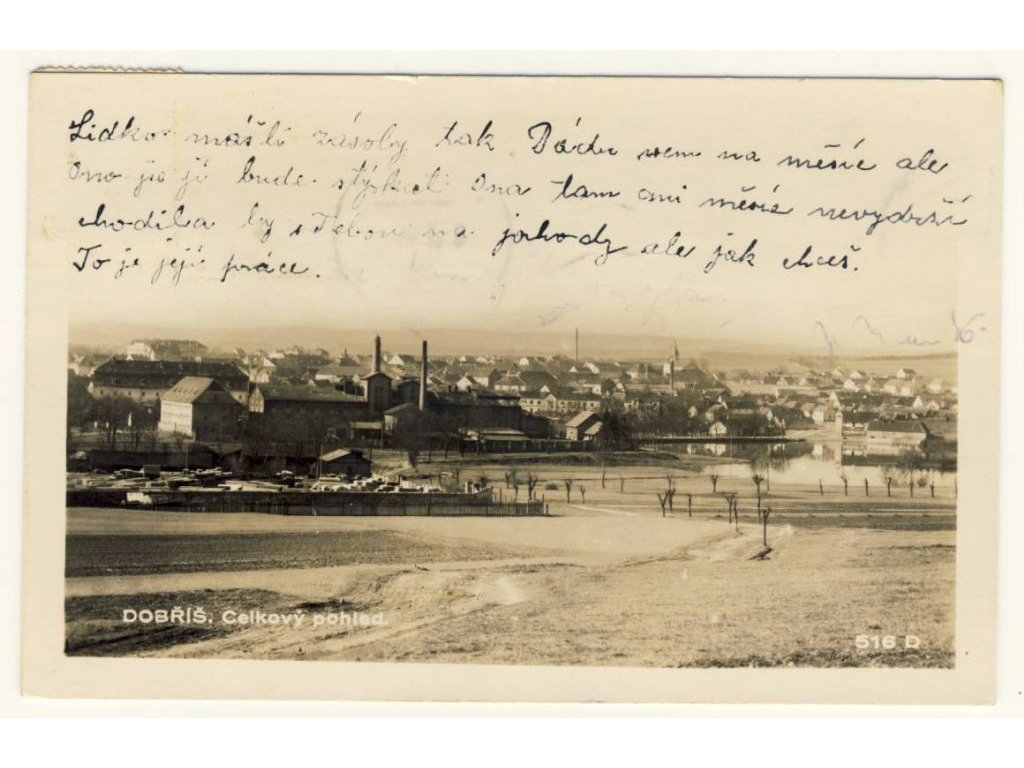 Lidko mášli zásoby tak Dádu vem na měsíc ale
Ono je jí bude stýskat Ona tam ani měsíc nevydrží
chodila by s Tebou na jahody ale jak chceš.
To je její práce.
DOBŘÍŠ. Celkový pohled.
516 D